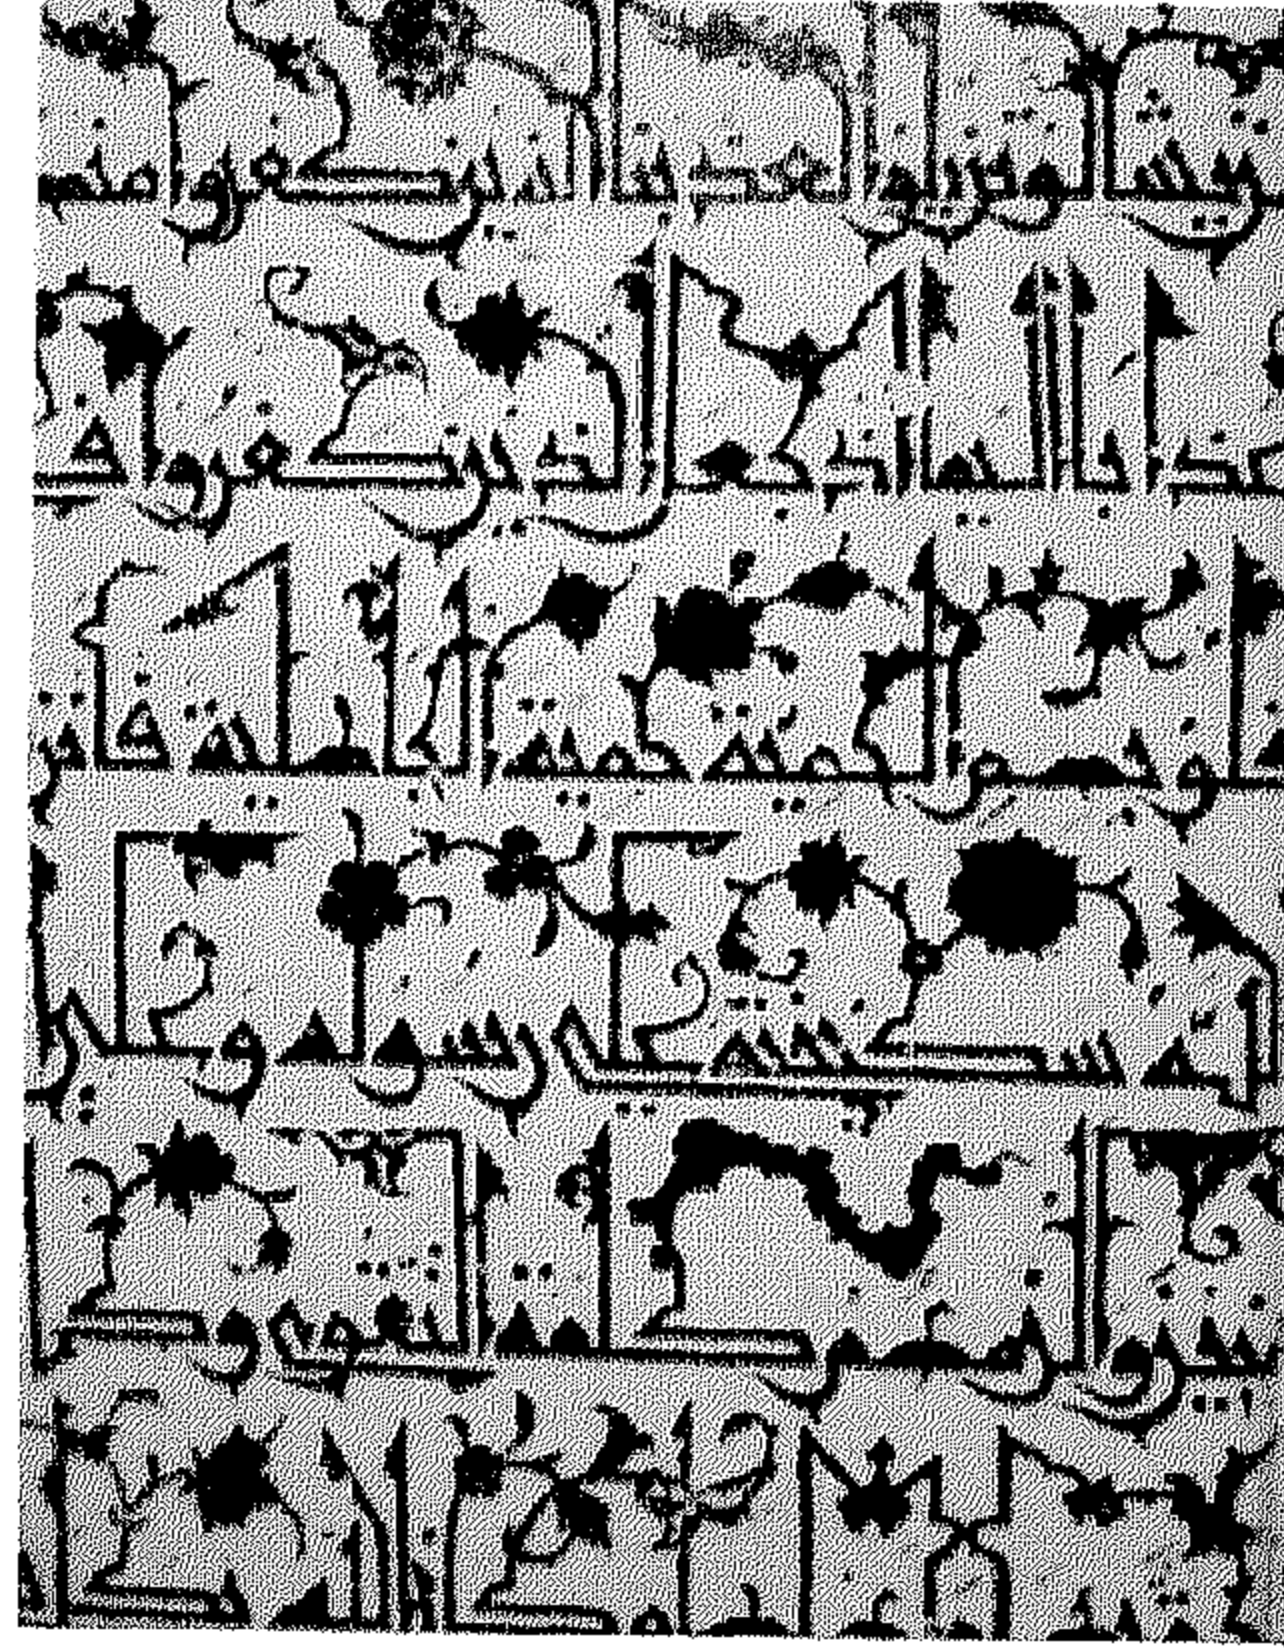 يشا لو تزيلوا لعذبنا الذين كفروا منهم
عذابا اليما اذ جعل الذين كفروا في
قلوبهم الحمية حمية الجاهلية فانز
ل الله سكينته على رسوله وعلى
والزمهم كلمة التقوى وكا